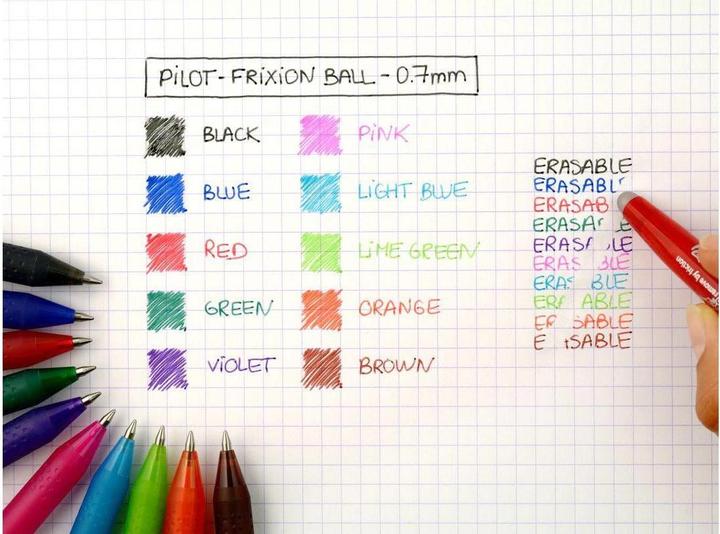 PiLOT-FRIXION BALL-0.7mm
BLACK
BLUE
RED
GREEN
ViOLET
PiNK
LiGHT BLUE
LiME GREEN
ORANGE
BROWN
ERASABLE
ERASABL
ERASAB
ERASA E
ERAS LE
ERAS BLE
ERAS BLE
ERA ABLE
E SABLE
E SABLE
remove by friction